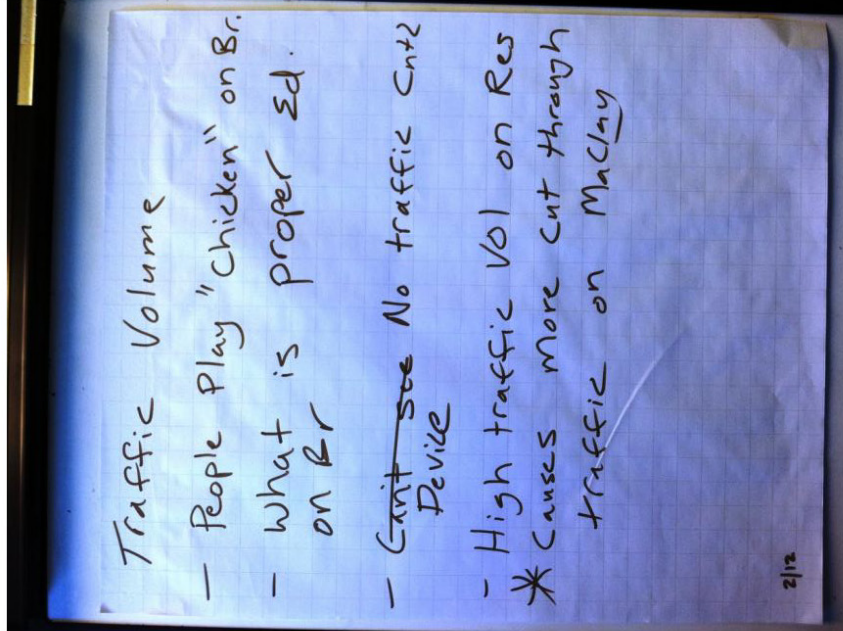 Traffic Volume
- People Play "Chicken" on Br.
- What is proper Ed.
on Br
- Can't see No traffic Cntl
Device
- High traffic Vol on Res
* Causes more cut through
traffic on Maclay
2/12